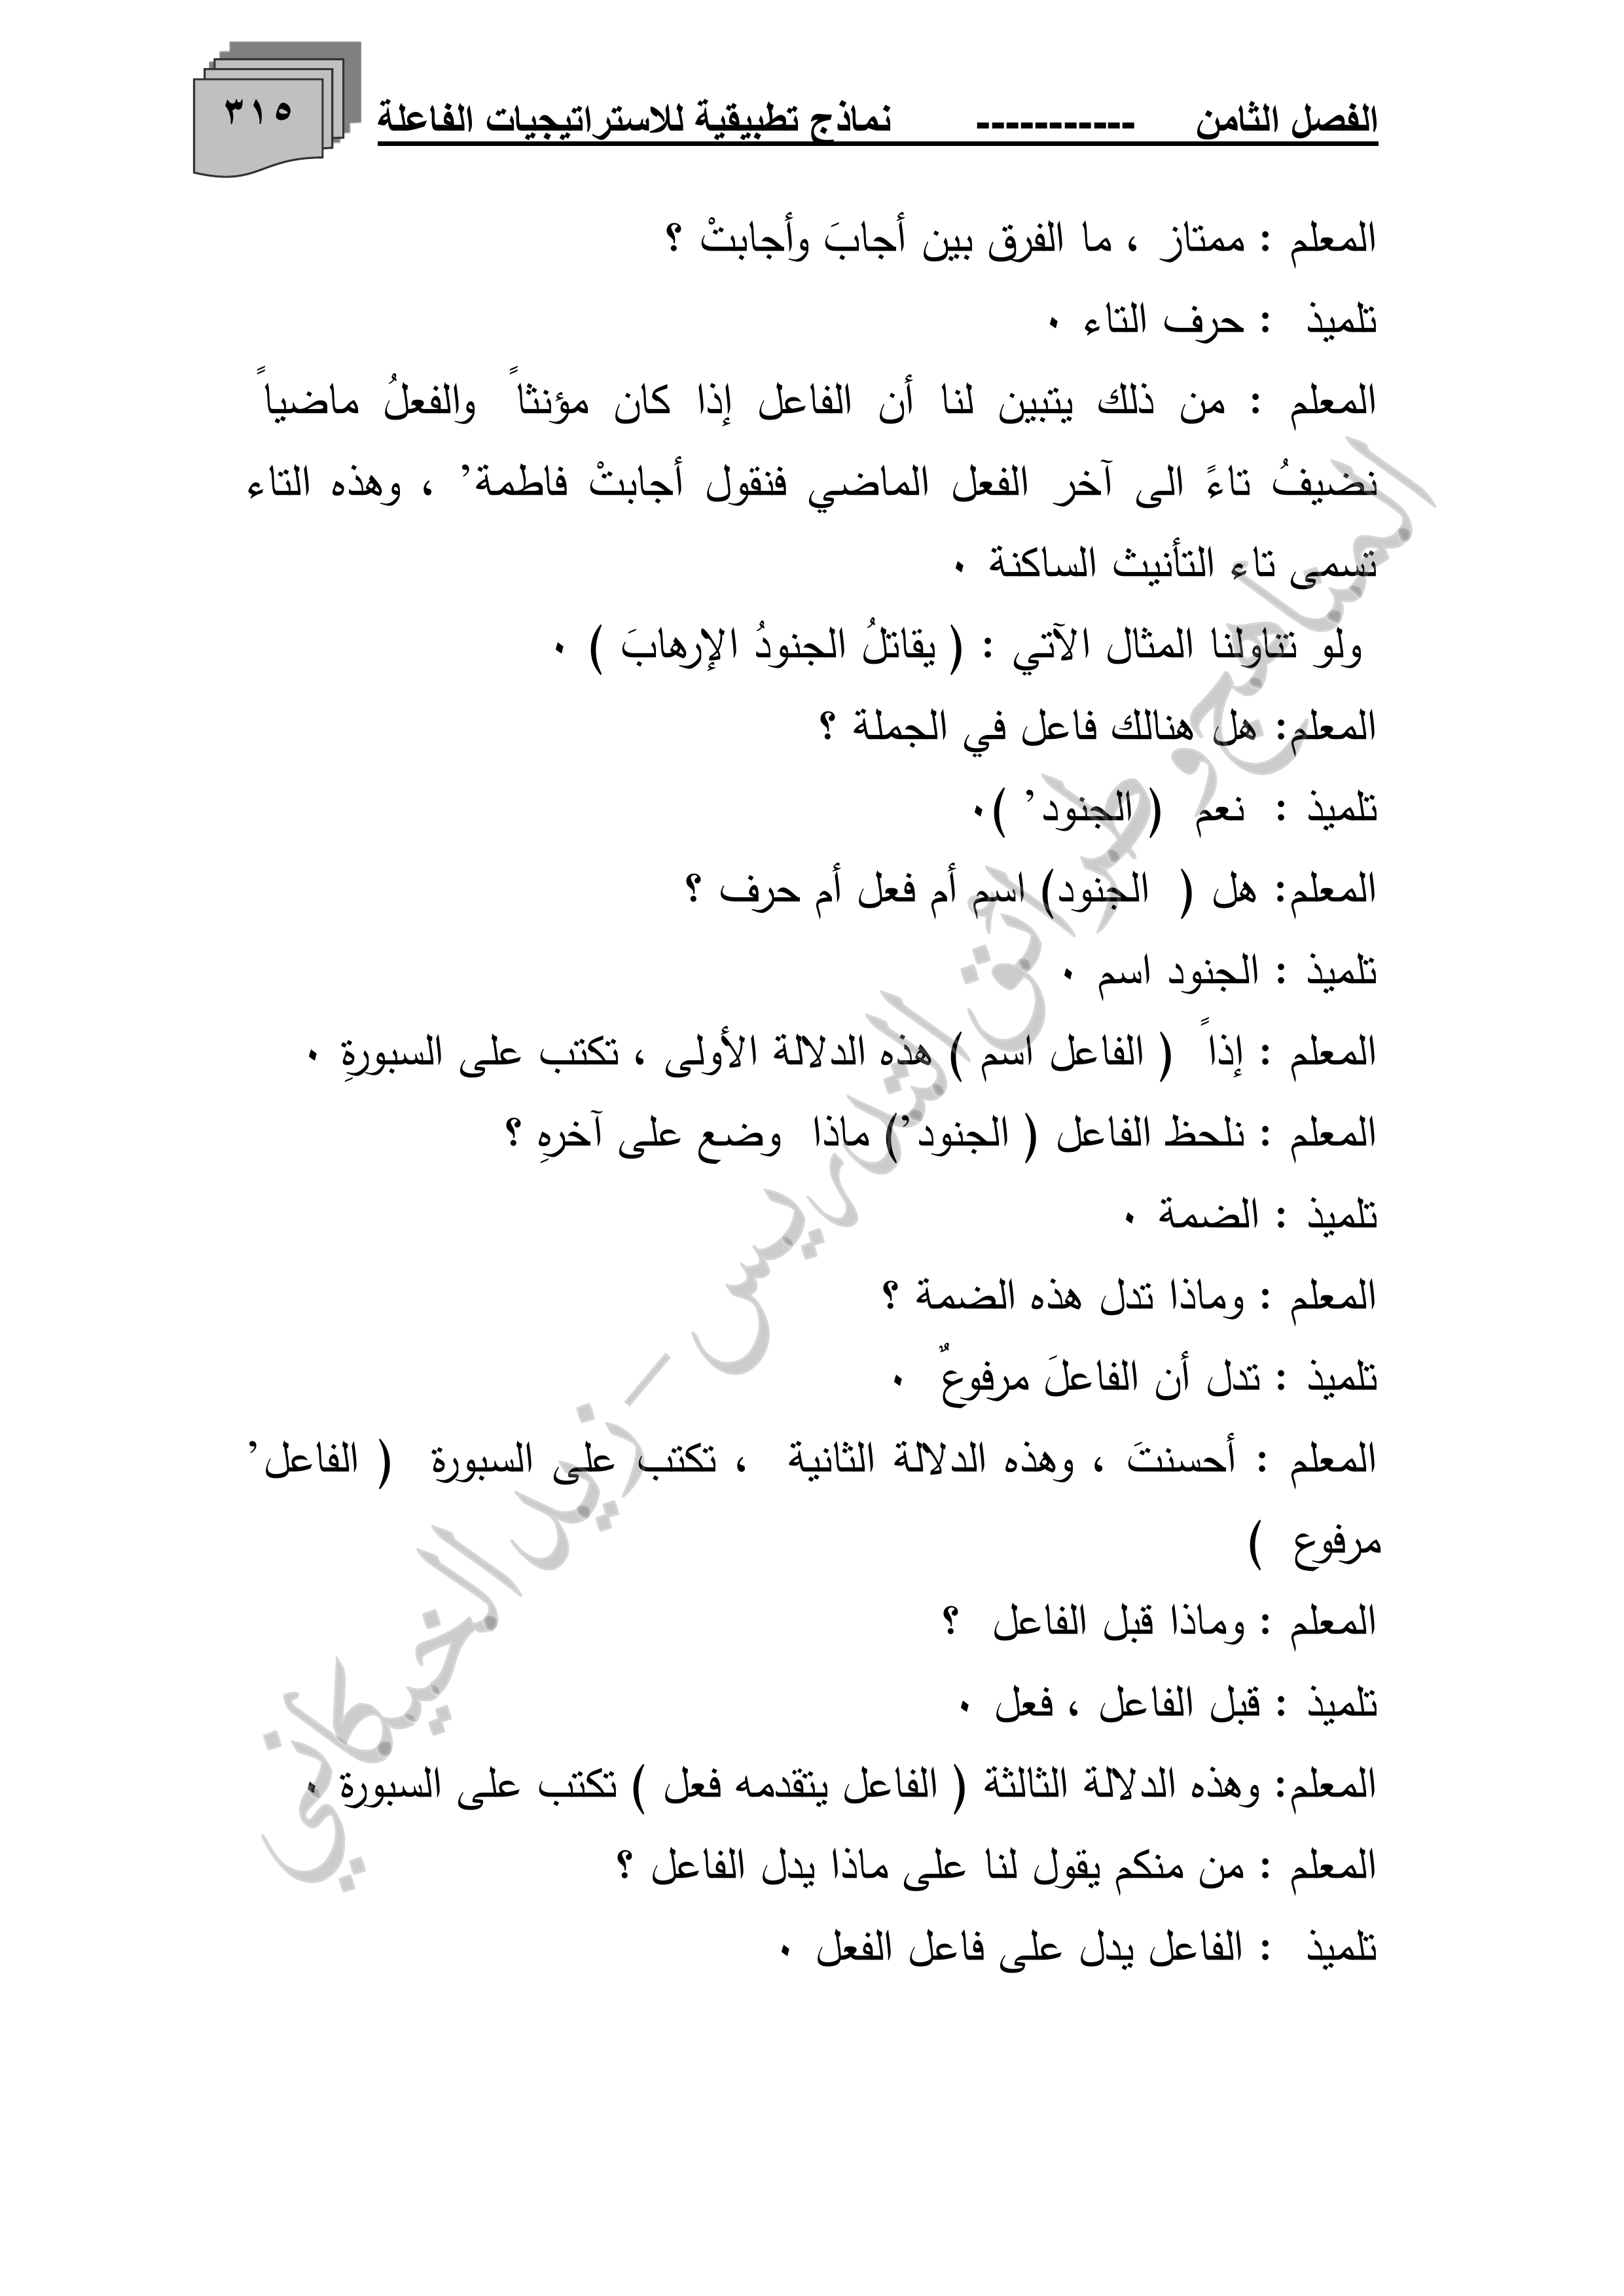 الفصل الثامن ----------- نماذج تطبيقية للاستراتيجيات الفاعلة
٣١٥
المعلم : ممتاز ، ما الفرق بين أجابَ وأجابتْ ؟
تلميذ : حرف التاء ٠
المعلم : من ذلك يتبين لنا أن الفاعل إذا كان مؤنثاً والفعلُ ماضياً
نضيفُ تاءً الى آخر الفعل الماضي فنقول أجابتْ فاطمة’ ، وهذه التاء
تسمى تاء التأنيث الساكنة ٠
ولو تناولنا المثال الآتي : ( يقاتلُ الجنودُ الإرهابَ ) ٠
المعلم: هل هنالك فاعل في الجملة ؟
تلميذ : نعم ( الجنود’ )٠
المعلم: هل ( الجنود) اسم أم فعل أم حرف ؟
تلميذ : الجنود اسم ٠
المعلم : إذاً ( الفاعل اسم ) هذه الدلالة الأولى ، تكتب على السبورةِ ٠
المعلم : نلحظ الفاعل ( الجنود’) ماذا وضع على آخرهِ ؟
تلميذ : الضمة ٠
المعلم : وماذا تدل هذه الضمة ؟
تلميذ : تدل أن الفاعلَ مرفوعٌ ٠
المعلم : أحسنتَ ، وهذه الدلالة الثانية ، تكتب على السبورة ( الفاعل’
مرفوع )
المعلم : وماذا قبل الفاعل ؟
تلميذ : قبل الفاعل ، فعل ٠
المعلم: وهذه الدلالة الثالثة ( الفاعل يتقدمه فعل ) تكتب على السبورة ٠
المعلم : من منكم يقول لنا على ماذا يدل الفاعل ؟
تلميذ : الفاعل يدل على فاعل الفعل ٠
المناهج وطرائق التدريس – زيد الخيكاني